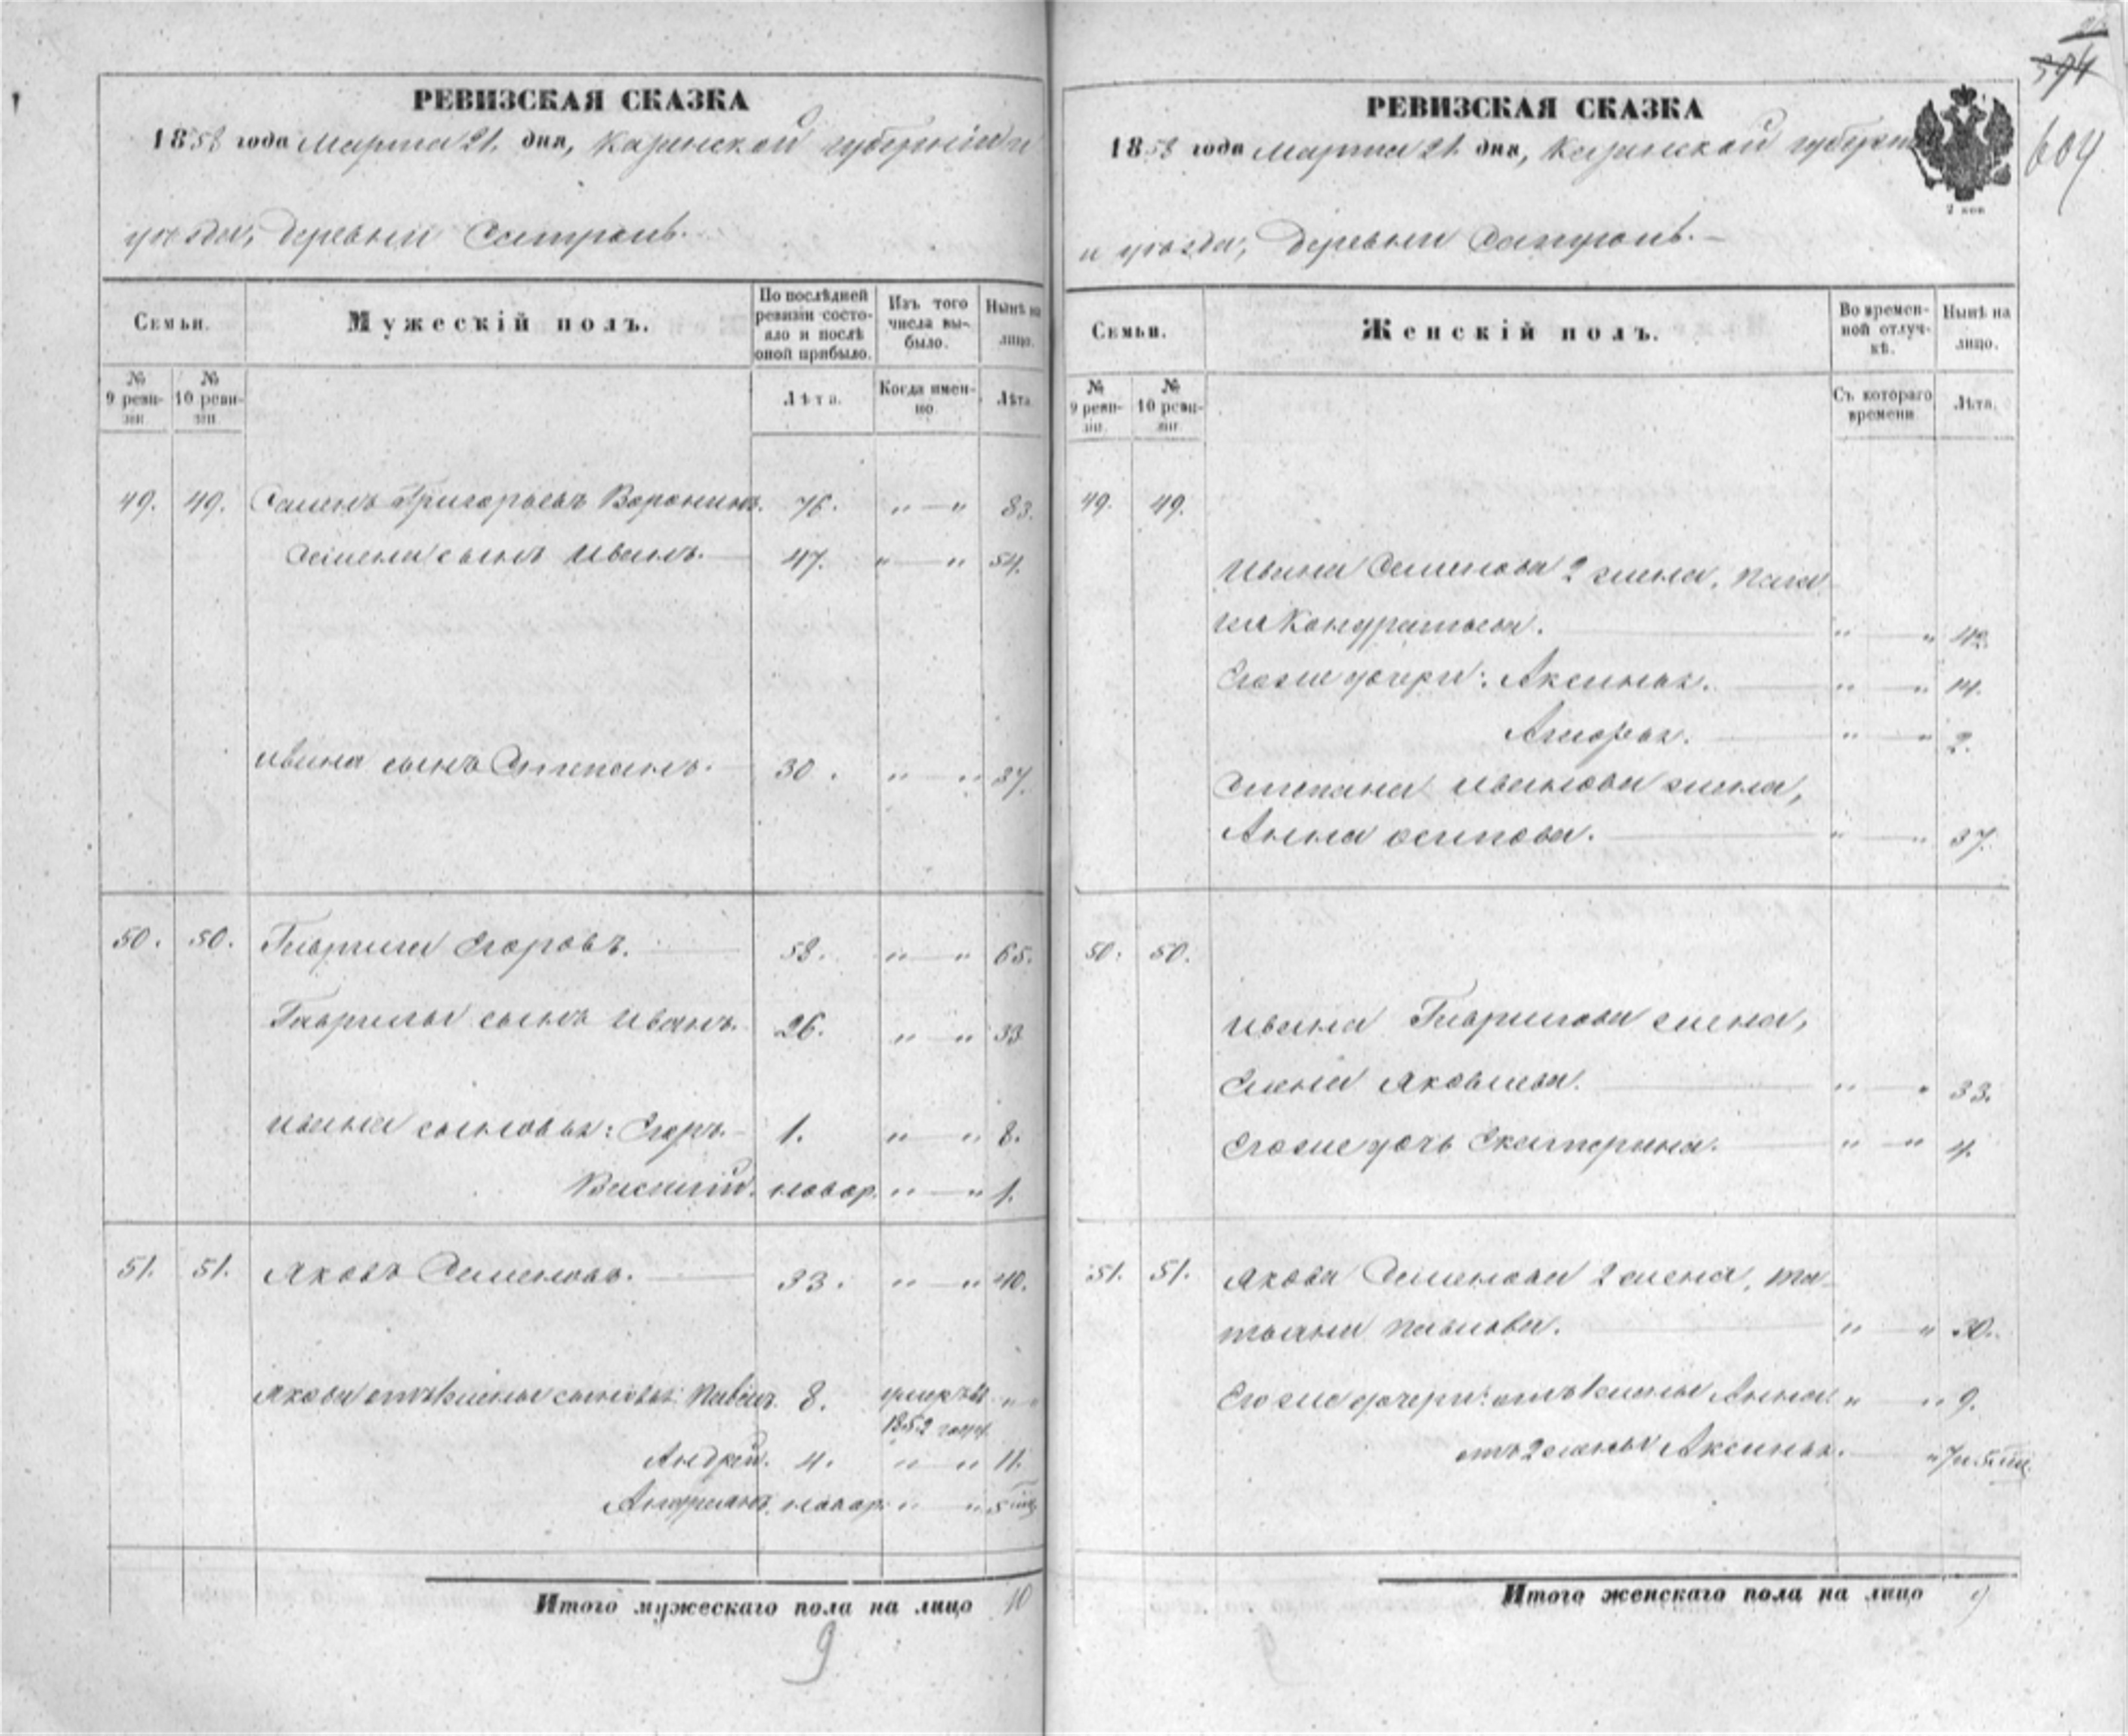 РЕВИЗСКАЯ СКАЗКА
1858 года Марта 21. дня, Казанской губерніи и
уѣзда, деревни
Семьи.
Мужескій полъ.
По послѣдней ревизіи состояло и послѣ оной прибыло.
Изъ того числа выбыло.
Нынѣ на лицо.
№ 9 ревизіи.
№ 10 ревизіи.
Лѣта.
Когда именно.
Лѣта.
49. 49. Семенъ Григорьевъ Воронинъ. 76. " — " 83.
Семена сынъ Иванъ. 47. " — " 54.
Ивана сынъ Степанъ. 30. " — " 37.
50. 50. Гаврила Егоровъ. 58. " — " 65.
Гаврилы сынъ Иванъ. 26. " — " 33
Ивана сыновья: Егоръ. 1. " — " 8.
Василій. новор. " — " 1.
51. 51. Яковъ Семеновъ. 33. " — " 40.
Якова отъ 1 жены сыновья: Павелъ. 8. умеръ въ " "
1852 году.
Андрей. 4. " — " 11.
новор. " — " 5
Итого мужескаго пола на лицо 10
9
РЕВИЗСКАЯ СКАЗКА
1858 года Марта 21. дня, Казанской губерніи
2 коп
594
604
и уѣзда, деревни
Семьи.
Женскій полъ.
Во временной отлучкѣ.
Нынѣ на лицо.
№ 9 ревизіи.
№ 10 ревизіи.
Съ котораго времени
Лѣта.
49. 49.
Ивана Семенова 2 жена,
Кондратьева. " — " 42.
Его же дочери: Аксинья. " — " 14.
" — " 2.
Степана Иванова жена,
Анна Осипова. " — " 37.
50. 50.
Ивана Гаврилова жена,
Яковлева. " — " 33.
Его же дочь Екатерина. " — " 4.
51. 51. Якова Семенова 2 жена, Та-
тьяна Павлова. " — " 30.
Его же дочери: отъ 1 жены Анна. " — " 9.
отъ 2 жены Аксинья. —
Итого женскаго пола на лицо 9